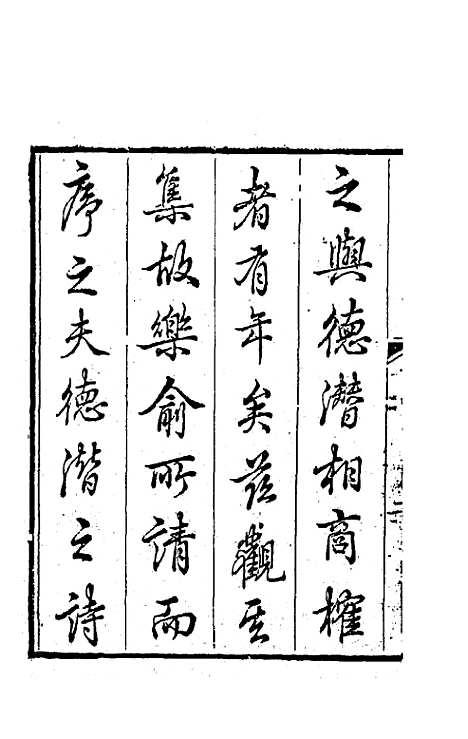 之與德潛相商榷
者有年矣茲觀其
集故樂俞所請而
序之夫德潛之詩